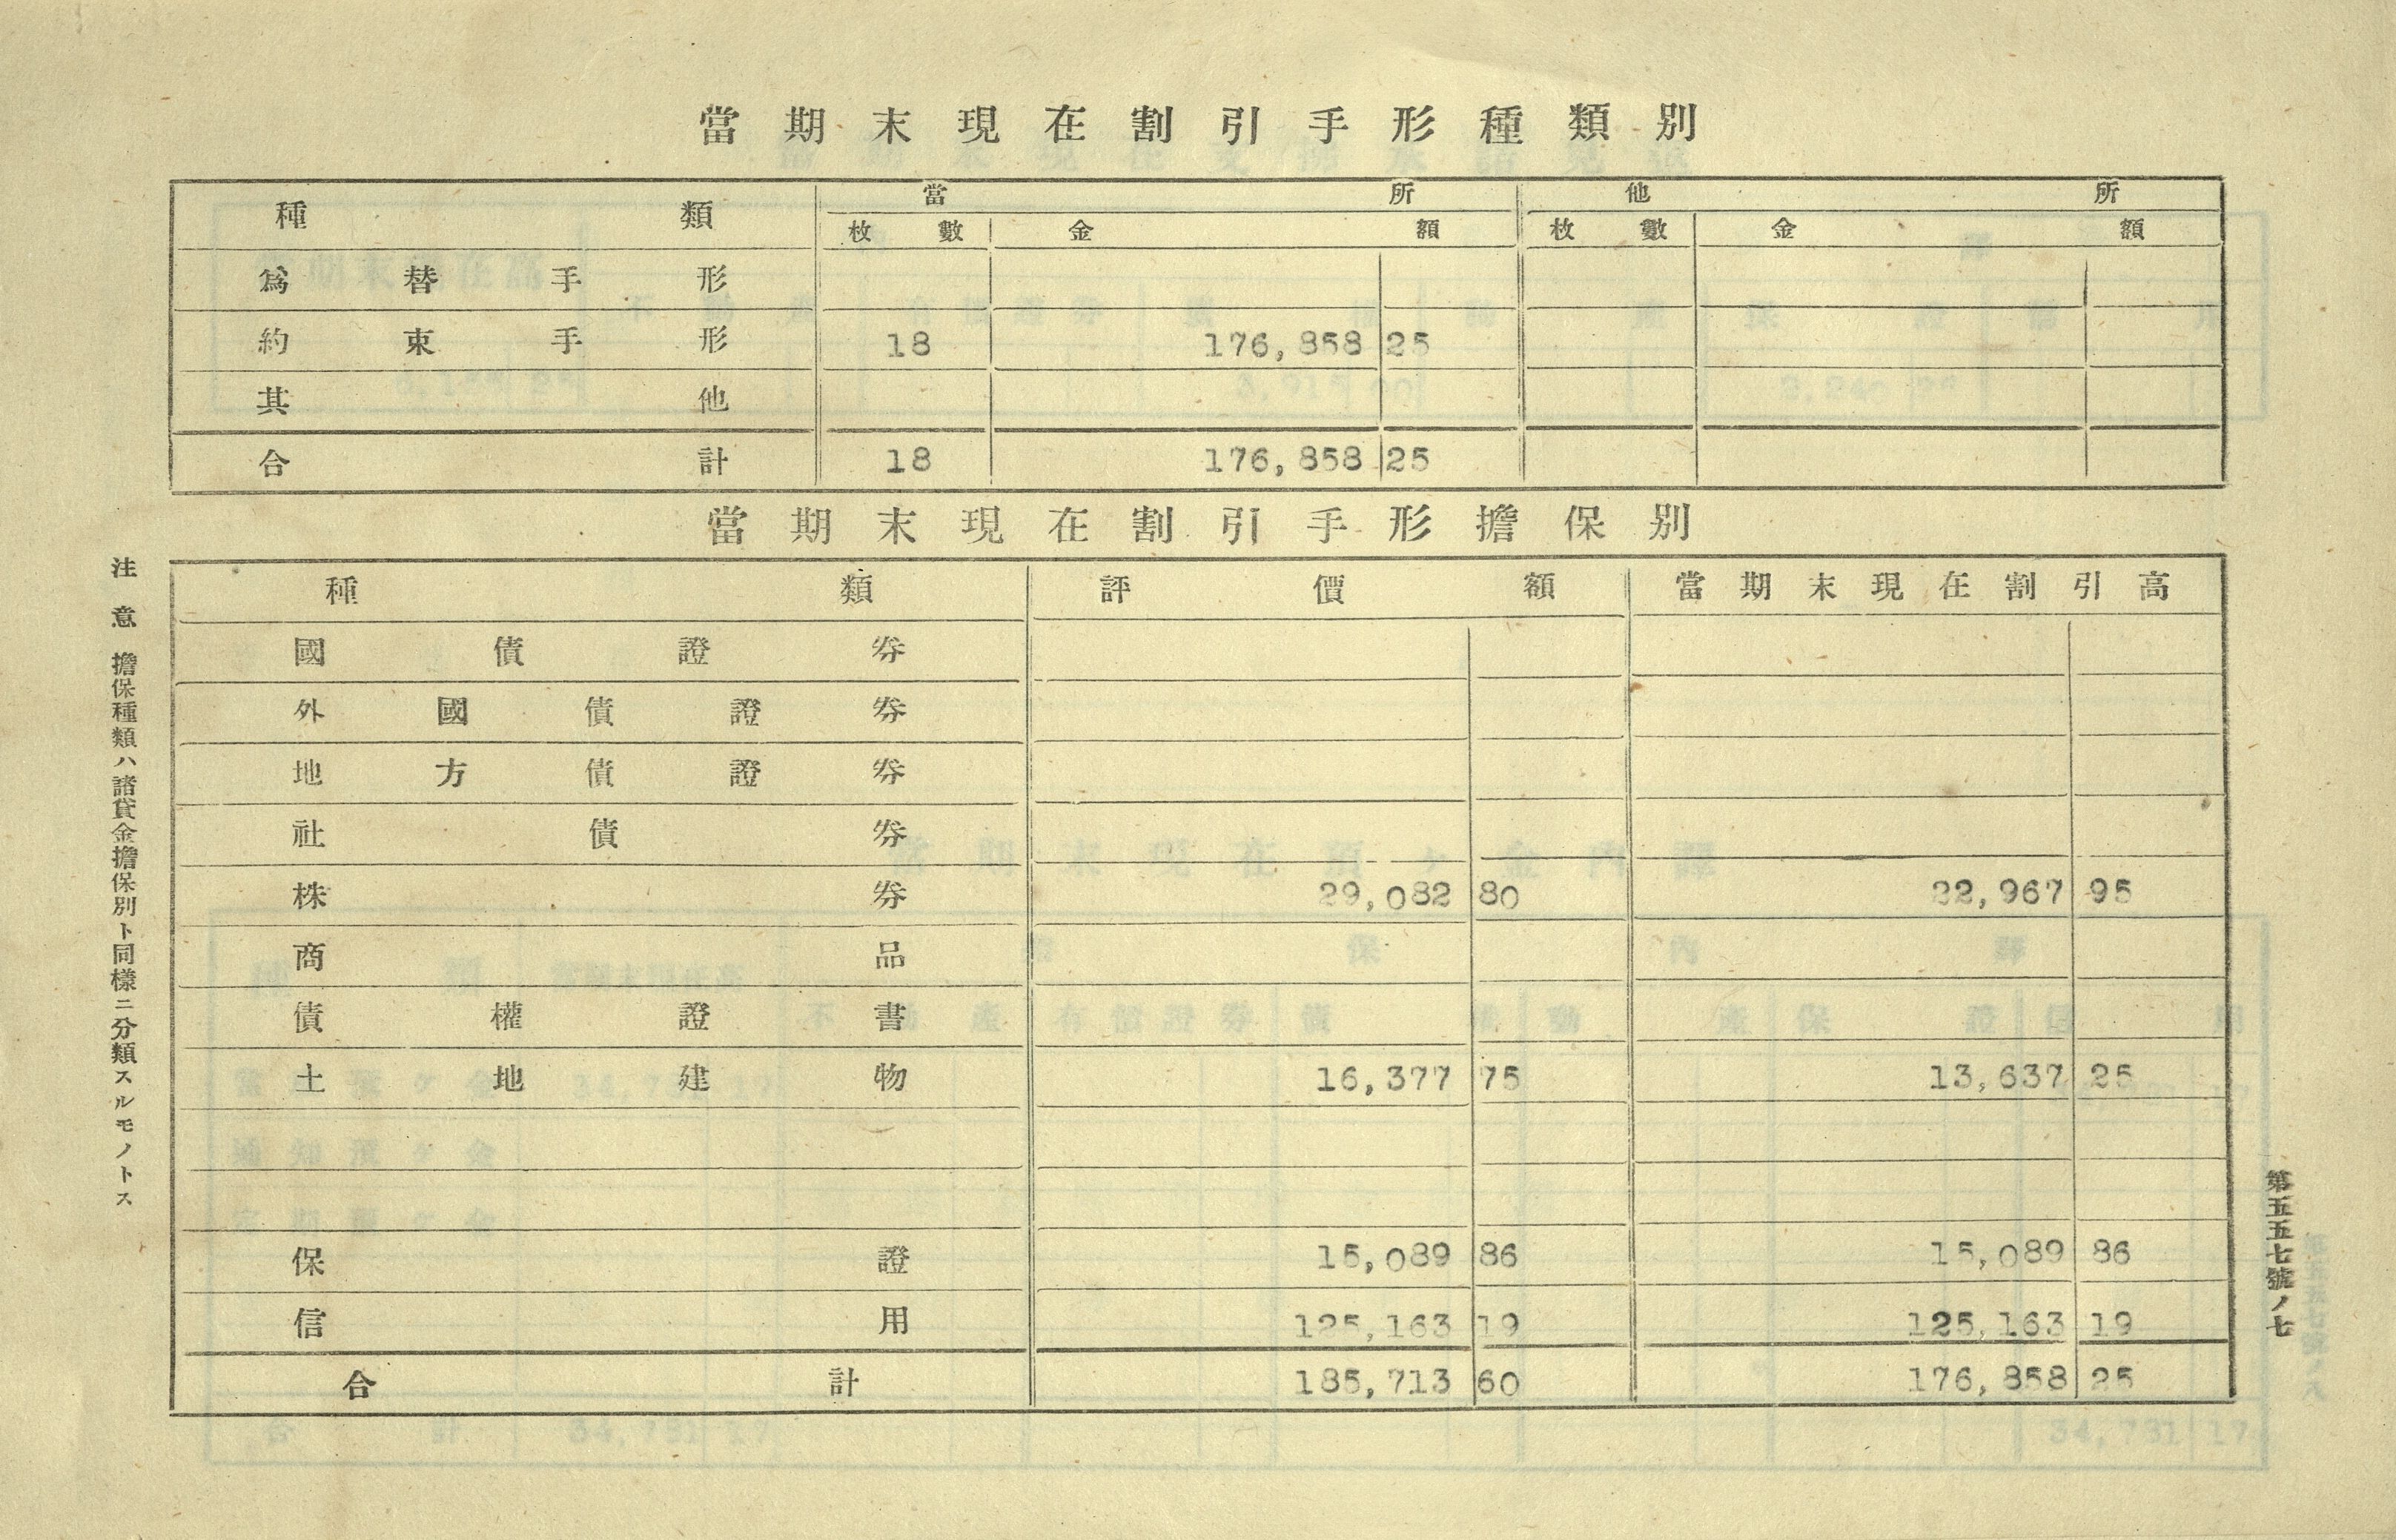 當期末現在割引手形種類別
種類 當所 他所
枚數 金額 枚數 金額
爲替手形
約束手形 18 176,858 25
其他
合計 18 176,858 25
當期末現在割引手形擔保別
種類 評價額 當期末現在割引高
國債證券
外國債證券
地方債證券
社債券
株券 29,082 80 22,967 95
商品
債權證書
土地建物 16,377 75 13,637 25
保證 15,089 86 15,089 86
信用 125,163 19 125,163 19
合計 185,713 60 176,858 25
注意 擔保種類ハ諸貸金擔保別ト同樣ニ分類スルモノトス
第五五七號ノ七